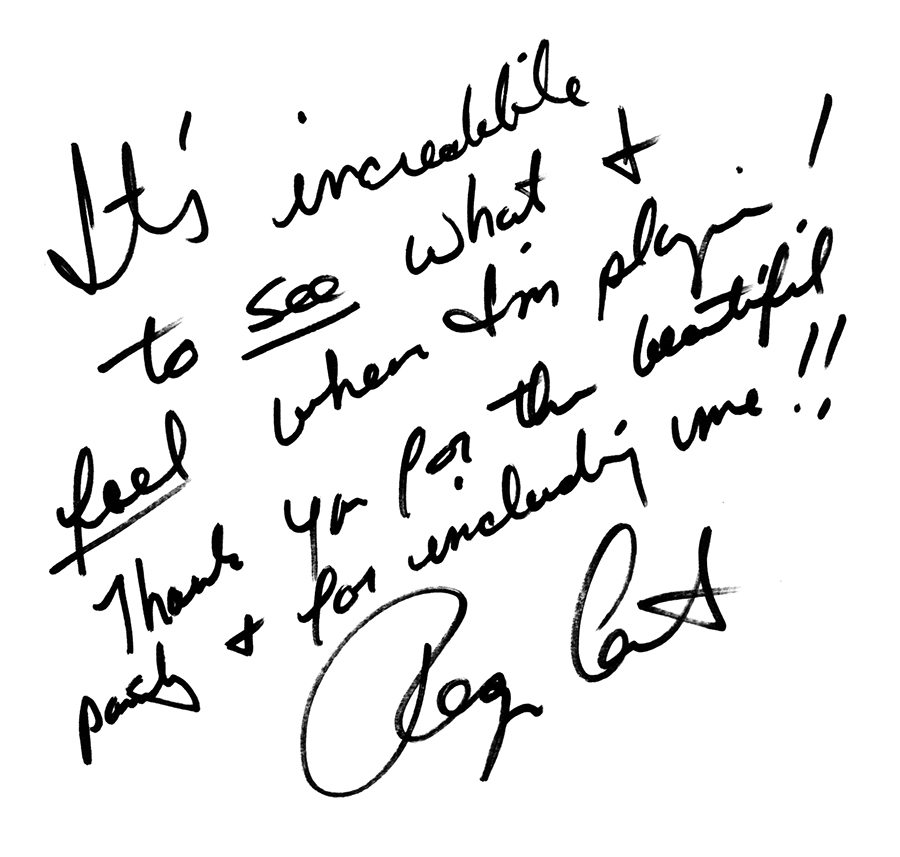 It's incredible
to see what I
feel when I'm playin!
Thank you for the beautiful
& for including me!!